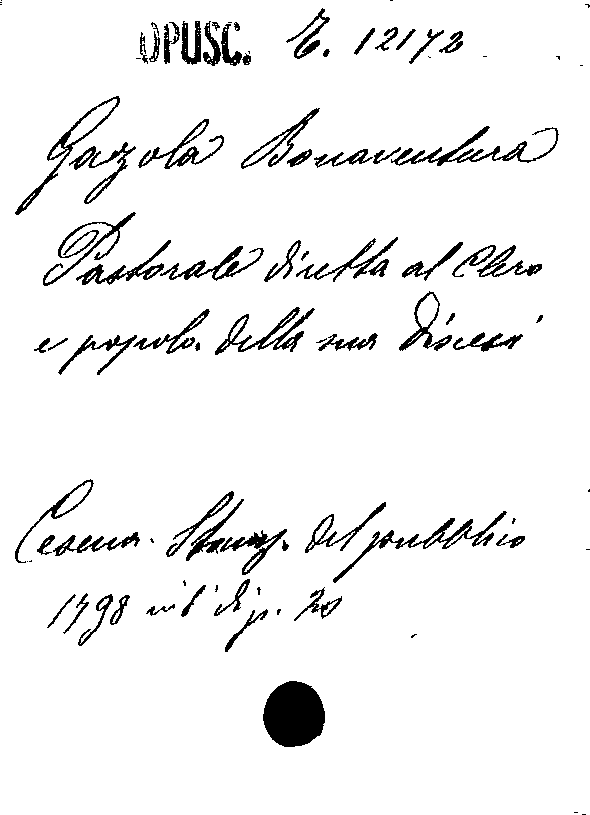 OPUSC. E. 12172
Gazola Bonaventura
Pastorale diretta al Clero
e popolo della sua Diocesi
Cesena. Stamp. del pubblico
1798 in 8° di p. 20